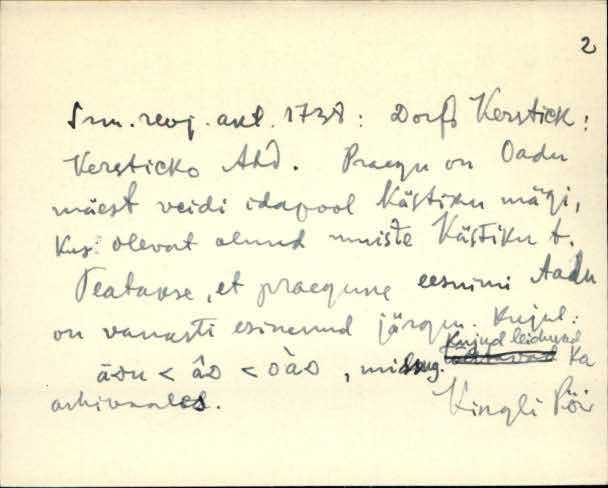 2
revj. akt. 1738: Dorfs Kerstick:
Kersticko Ahd. Praegu on Oadu
mäest veidi idapool Kästiku mägi,
kus olevat olnud muiste Kästiku t.
Teatakse, et praegune eesnimi Aadu
on vanasti esinenud järgm. kujul:
kujud leidused
āDu < âD < òàD, ka
arhivaales. Kingli